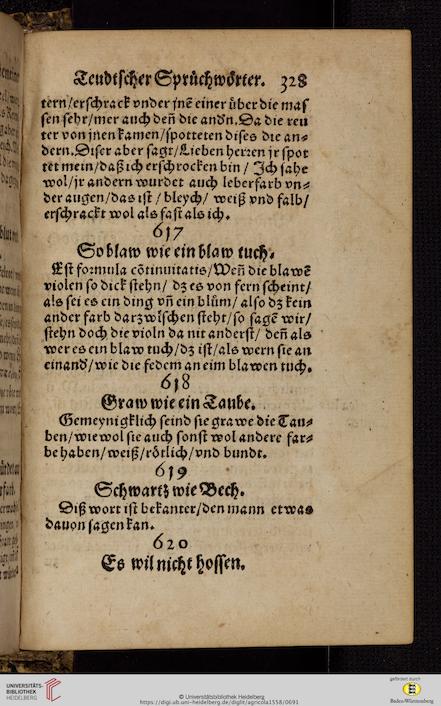 Teudtscher Sprüchwörter. 328
tern/erschrack vnder jnē einer über die mas
sen sehr/mer auch deñ die andn. Da die reu
ter von jnen kamen/spotteten dises die an=
dern. Diser aber sagt/Lieben herren jr spot
tet mein/daß ich erschrocken bin / Ich sahe
wol/jr andern wurdet auch leberfarb vn=
der augen/das ist / bleych/ weiß vnd falb/
erschrackt wol als fast als ich.
617
So blaw wie ein blaw tuch.
Est formula cōtinuitatis/Weñ die blawē
violen so dick stehn/ dz es von fern scheint/
als sei es ein ding vñ ein blům/ also dz kein
ander farb darzwischen steht/so sagē wir/
stehn doch die violn da nit anderst/ deñ als
wer es ein blaw tuch/dz ist/als wern sie an
einand/wie die fedem an eim blawen tuch.
618
Graw wie ein Taube.
Gemeynigklich seind sie grawe die Tau=
ben/wiewol sie auch sonst wol andere far=
be haben/weiß/rötlich/vnd bundt.
619
Schwartz wie Bech.
Diß wort ist bekanter/den mann etwas
dauon sagen kan.
620
Es wil nicht hossen.
UNIVERSITÄTS-
BIBLIOTHEK
HEIDELBERG
© Universitätsbibliothek Heidelberg
https://digi.ub.uni-heidelberg.de/diglit/agricola1558/0691
gefördert durch
Baden-Württemberg